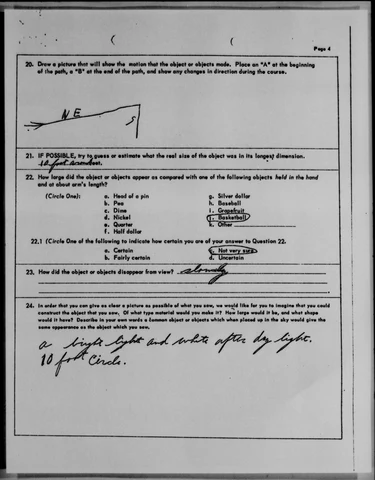 Page 4
20. Draw a picture that will show the motion that the object or objects made. Place an "A" at the beginning
of the path, a "B" at the end of the path, and show any changes in direction during the course.
NE
S
21. IF POSSIBLE, try to guess or estimate what the real size of the object was in its longest dimension.
10 foot
22. How large did the object or objects appear as compared with one of the following objects held in the hand
and at about arm's length?
(Circle One): a. Head of a pin g. Silver dollar
b. Pea h. Baseball
c. Dime i. Grapefruit
d. Nickel j. Basketball
e. Quarter k. Other
f. Half dollar
22.1 (Circle One of the following to indicate how certain you are of your answer to Question 22.
a. Certain c. Not very sure
b. Fairly certain d. Uncertain
23. How did the object or objects disappear from view? slowly
24. In order that you can give as clear a picture as possible of what you saw, we would like for you to imagine that you could
construct the object that you saw. Of what type material would you make it? How large would it be, and what shape
would it have? Describe in your own words a common object or objects which when placed up in the sky would give the
same appearance as the object which you saw.
a bright light and white after day light.
10 foot Circle.